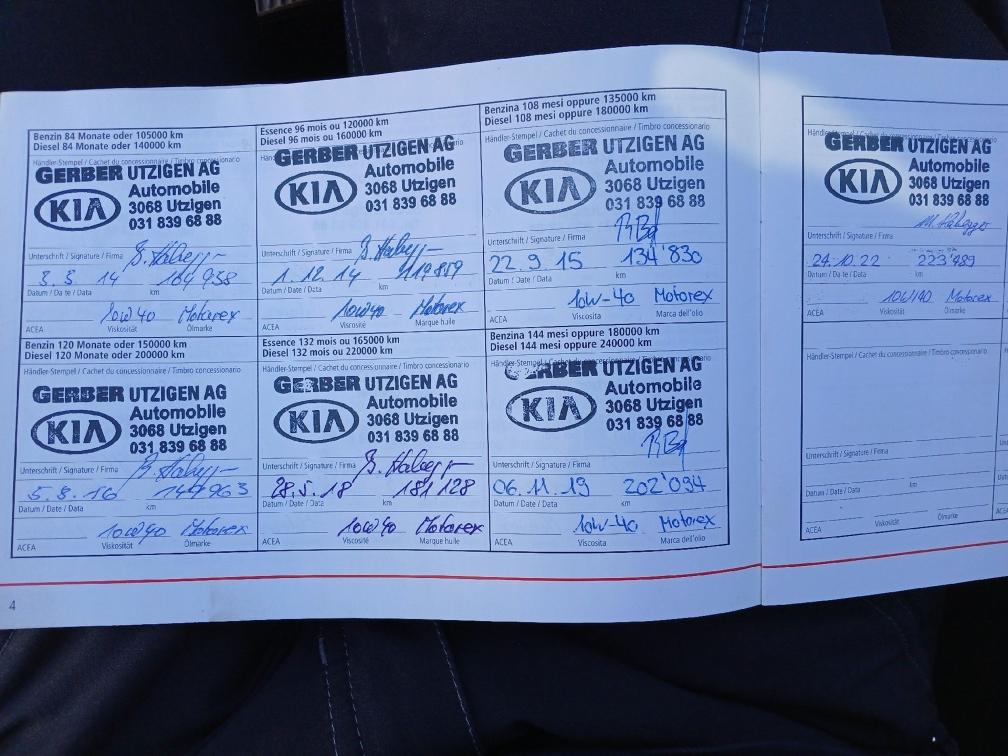 Benzin 84 Monate oder 105000 km
Diesel 84 Monate oder 140000 km
Händler-Stempel / Cachet du concessionnaire / Timbro concessionario
GERBER UTZIGEN AG
KIA
Automobile
3068 Utzigen
031 839 68 88
Unterschrift / Signature / Firma
14
Datum / Date / Data km
10W40 Motorex
ACEA Viskosität Ölmarke
Essence 96 mois ou 120000 km
Diesel 96 mois ou 160000 km
GERBER UTZIGEN AG
KIA
Automobile
3068 Utzigen
031 839 68 88
Unterschrift / Signature / Firma
1. 12. 14 119859
Datum / Date / Data km
10W40 Motorex
ACEA Viscosité Marque huile
Benzina 108 mesi oppure 135000 km
Diesel 108 mesi oppure 180000 km
Händler-Stempel / Cachet du concessionnaire / Timbro concessionario
GERBER UTZIGEN AG
KIA
Automobile
3068 Utzigen
031 839 68 88
Unterschrift / Signature / Firma
22. 9 15 134'830
Datum / Date / Data km
10W-40 Motorex
ACEA Viscosita Marca dell'olio
Benzin 120 Monate oder 150000 km
Diesel 120 Monate oder 200000 km
Händler-Stempel / Cachet du concessionnaire / Timbro concessionario
GERBER UTZIGEN AG
KIA
Automobile
3068 Utzigen
031 839 68 88
Unterschrift / Signature / Firma
5. 8. 16
Datum / Date / Data km
10W40 Motorex
ACEA Viskosität Ölmarke
Essence 132 mois ou 165000 km
Diesel 132 mois ou 220000 km
Händler-Stempel / Cachet du concessionnaire / Timbro concessionario
GERBER UTZIGEN AG
KIA
Automobile
3068 Utzigen
031 839 68 88
Unterschrift / Signature / Firma
28. 5. 18 181 128
Datum / Date / Data km
10W40 Motorex
ACEA Viscosité Marque huile
Benzina 144 mesi oppure 180000 km
Diesel 144 mesi oppure 240000 km
Händler-Stempel / Cachet du concessionnaire / Timbro concessionario
GERBER UTZIGEN AG
KIA
Automobile
3068 Utzigen
031 839 68 88
Unterschrift / Signature / Firma
06. 11. 19 202'094
Datum / Date / Data km
10W-40 Motorex
ACEA Viscosita Marca dell'olio
4
GERBER UTZIGEN AG
KIA
Automobile
3068 Utzigen
031 839 68 88
Unterschrift / Signature / Firma
24. 10. 22 223'489
Datum / Date / Data km
10W40 Motorex
ACEA Viskosität Ölmarke
Händler-Stempel / Cachet du concessionnaire / Timbro concessionario
Unterschrift / Signature / Firma
Datum / Date / Data km
ACEA Viskosität Ölmarke